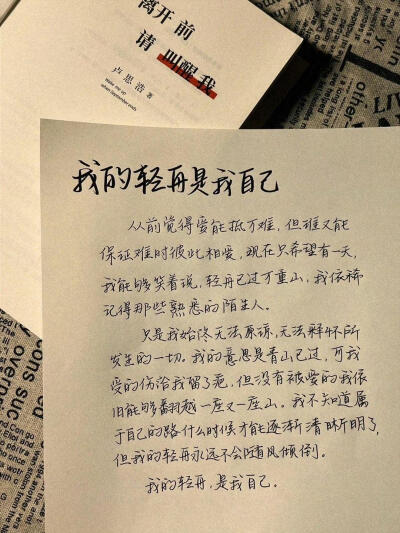 离开前
请 叫醒我
卢思浩 著
wake me up
when september ends
我的轻舟是我自己
从前觉得爱能抵万难，但谁又能
保证难时彼此相爱，现在只希望有一天，
我能够笑着说，轻舟已过万重山，我依稀
记得那些熟悉的陌生人。
只是我始终无法原谅，无法释怀所
发生的一切。我的意思是青山已过，可我
受的伤治我留了疤，但没有被爱的我依
旧能够翻越一座又一座山。我不知道属
于自己的路什么时候才能逐渐清晰明了，
但我的轻舟永远不会随风倾倒。
我的轻舟，是我自己。